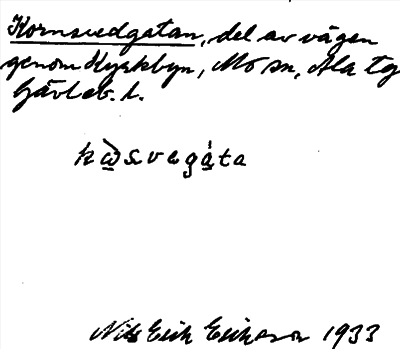 Kornsvedgatan, del av vägen
genom Kyrkbyn, Mo sn, Ala tg
Gävleb. l.
kὼsvegáta
Nils Erik Erikson 1933